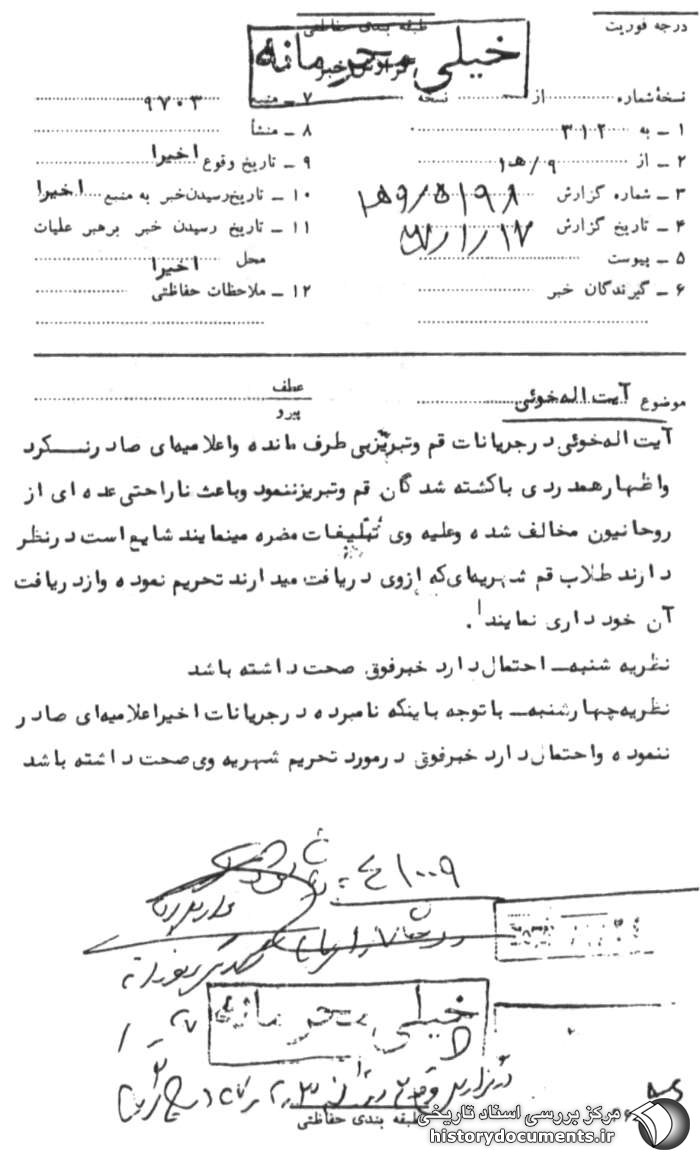 درجه فوریت
طبقه بندی حفاظتی
خیلی محرمانه
گزارش خبر
نسخهٔ شماره از نسخه
۱ ـ به ۳۱۲
۲ ـ از ۹/ه‍۱
۳ ـ شماره گزارش ۵۱۹۸/۹ه‍۱
۴ ـ تاریخ گزارش ۱۷/۱/
۵ ـ پیوست
۶ ـ گیرندگان خبر
۷ ـ منبع ۹۷۰۳
۸ ـ منشأ
۹ ـ تاریخ وقوع اخیرا
۱۰ ـ تاریخ رسیدن خبر به منبع اخیرا
۱۱ ـ تاریخ رسیدن خبر برهبر عملیات
محل اخیرا
۱۲ ـ ملاحظات حفاظتی
موضوع آیت اله خوئی
عطف
پیرو
آیت اله خوئی در جریانات قم وتبریز بی طرف مانده واعلامیه‌ای صادر نکرد
واظهار همدردی با کشته شدگان قم وتبریز ننمود وباعث ناراحتی عده ای از
روحانیون مخالف شده وعلیه وی تبلیغات مضره مینمایند شایع است در نظر
دارند طلاب قم شهریه‌ای که ازوی دریافت میدارند تحریم نموده واز دریافت
آن خودداری نمایند.
نظریه شنبه ـ احتمال دارد خبر فوق صحت داشته باشد
نظریه چهارشنبه ـ با توجه باینکه نامبرده در جریانات اخیر اعلامیه‌ای صادر
ننموده واحتمال دارد خبر فوق در مورد تحریم شهریه وی صحت داشته باشد
۴۱۰۰۹
خیلی محرمانه
طبقه بندی حفاظتی
مرکز بررسی اسناد تاریخی
historydocuments.ir